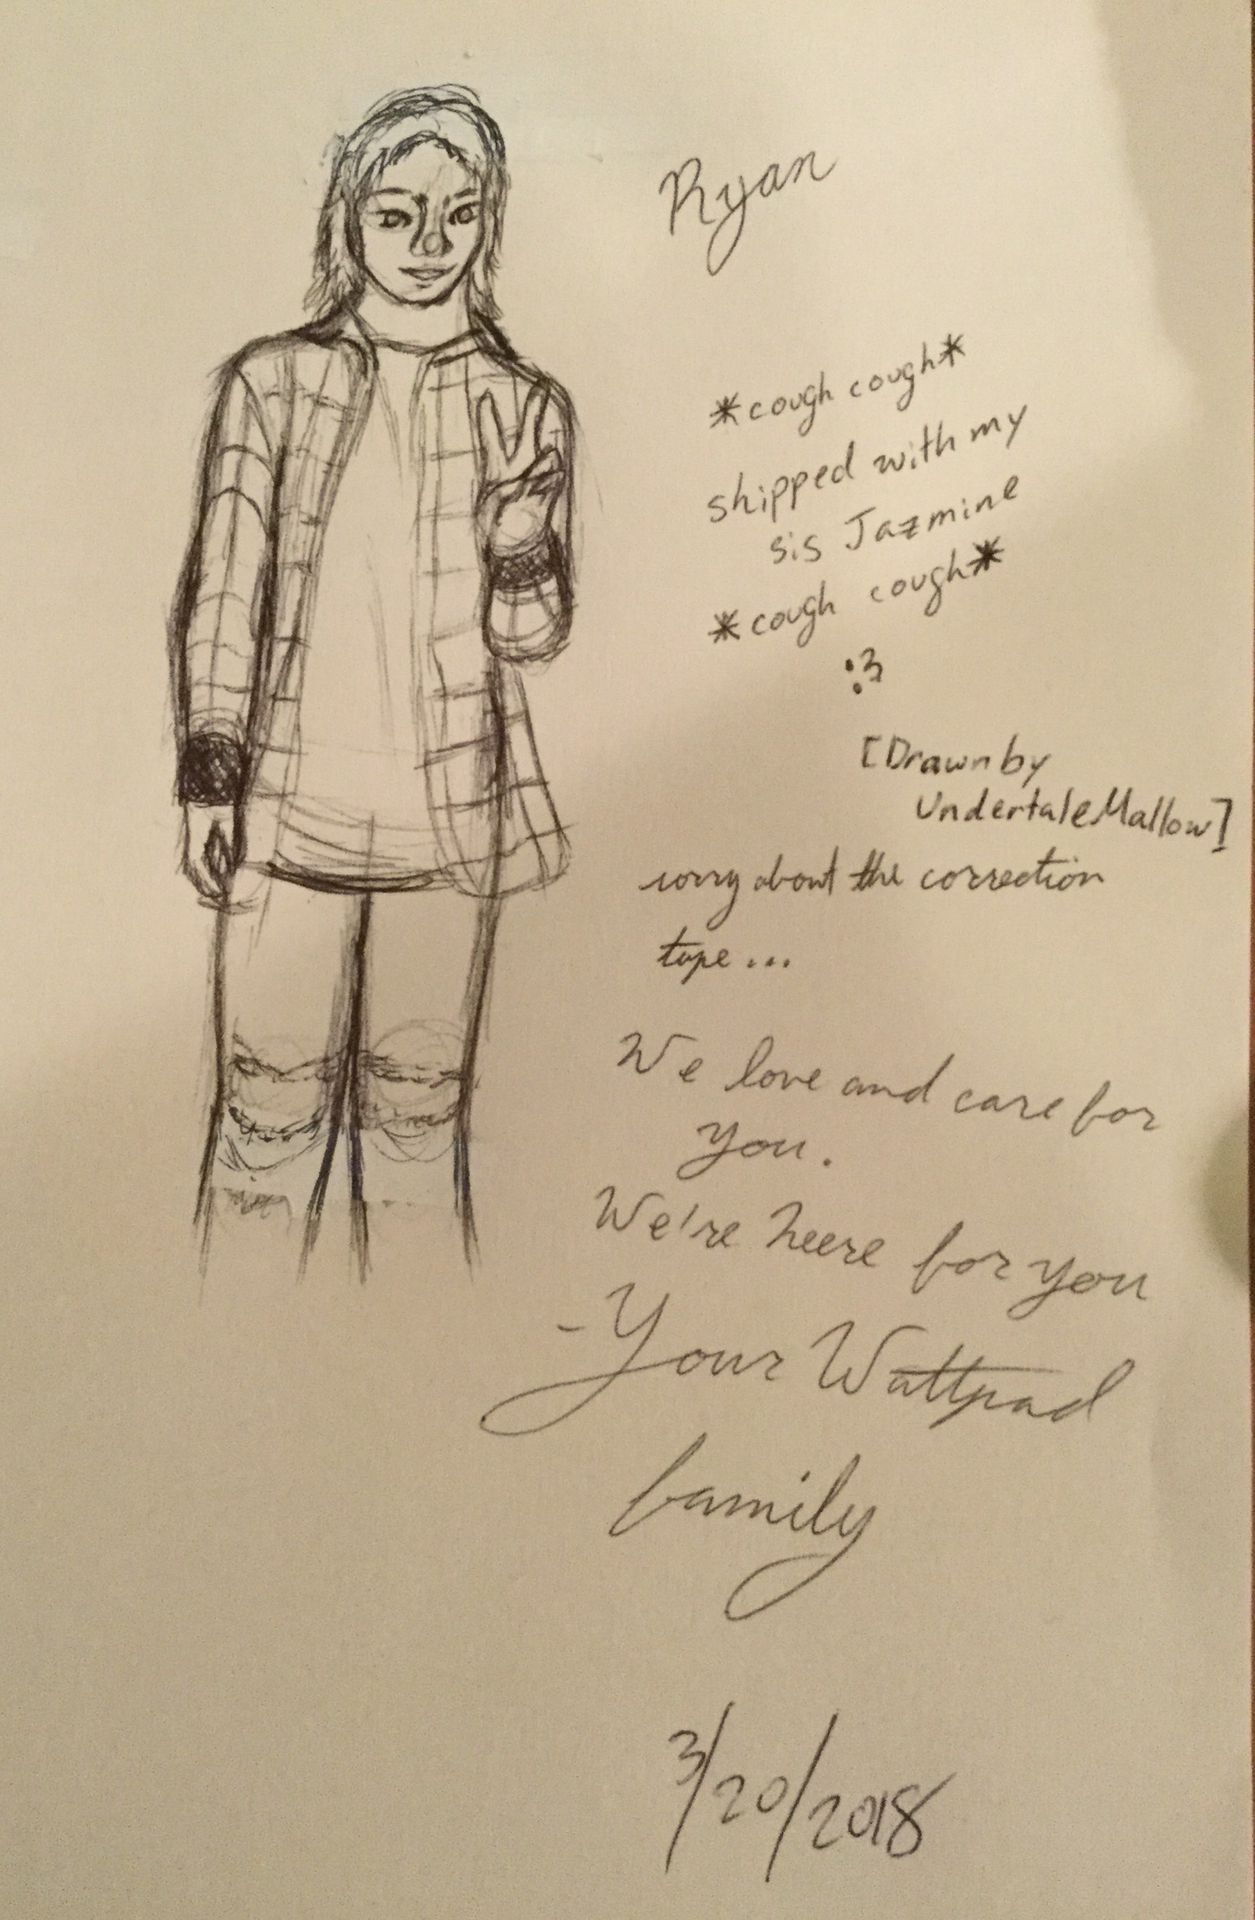 Ryan
*cough cough*
shipped with my
sis Jazmine
*cough cough*
:3
[Drawn by
UndertaleMallow]
sorry about the correction
tape...
We love and care for
you.
We're heere for you
-Your Wattpad
family
3/20/2018